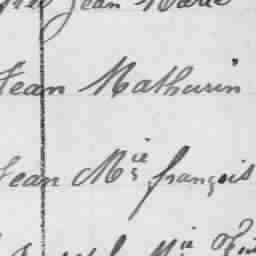 Jean Marie
Jean Mathurin
Jean Mie françois
Mie